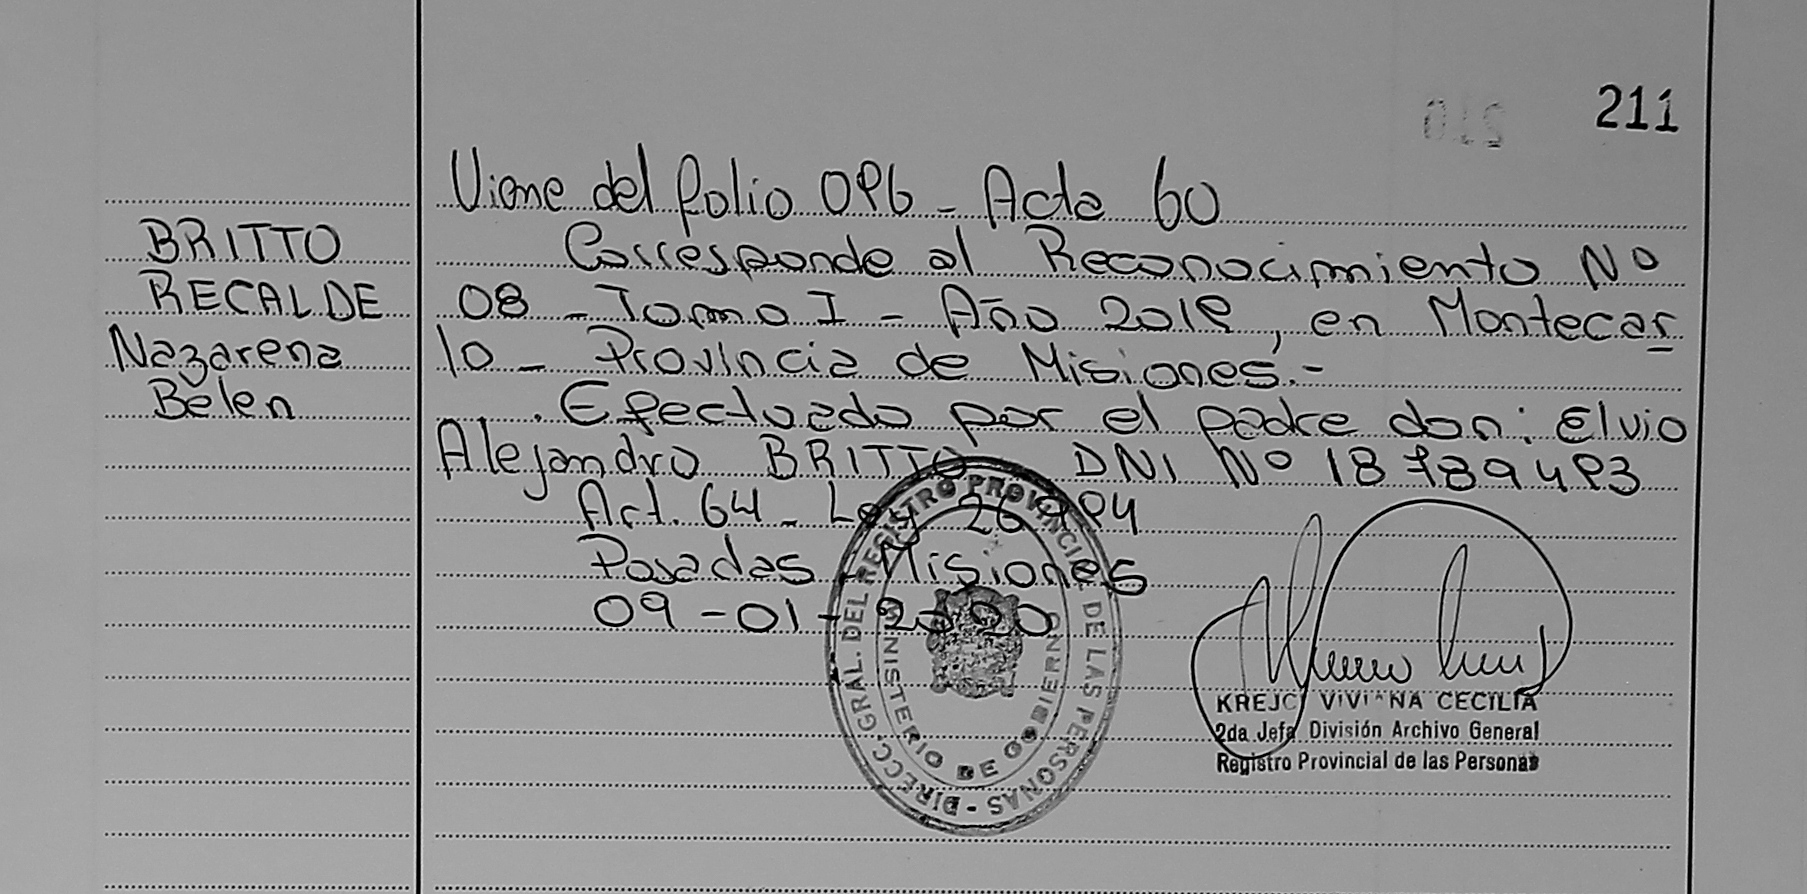 211
Viene del folio 096 - Acta 60
BRITTO
RECALDE
Nazarena
Belen
Corresponde al Reconocimiento Nº
08 - Tomo I - Año 2019, en Montecar
lo - Provincia de Misiones.-
Efectuado por el padre don: Elvio
Alejandro BRITTO DNI Nº 18789493
Art. 64 - Ley 26994
Posadas - Misiones
09-01-2020
DIRECC. GRAL. DEL REGISTRO PROVINCIAL DE LAS PERSONAS -
MINISTERIO DE GOBIERNO
KREJCI VIVIANA CECILIA
2da Jefa División Archivo General
Registro Provincial de las Personas